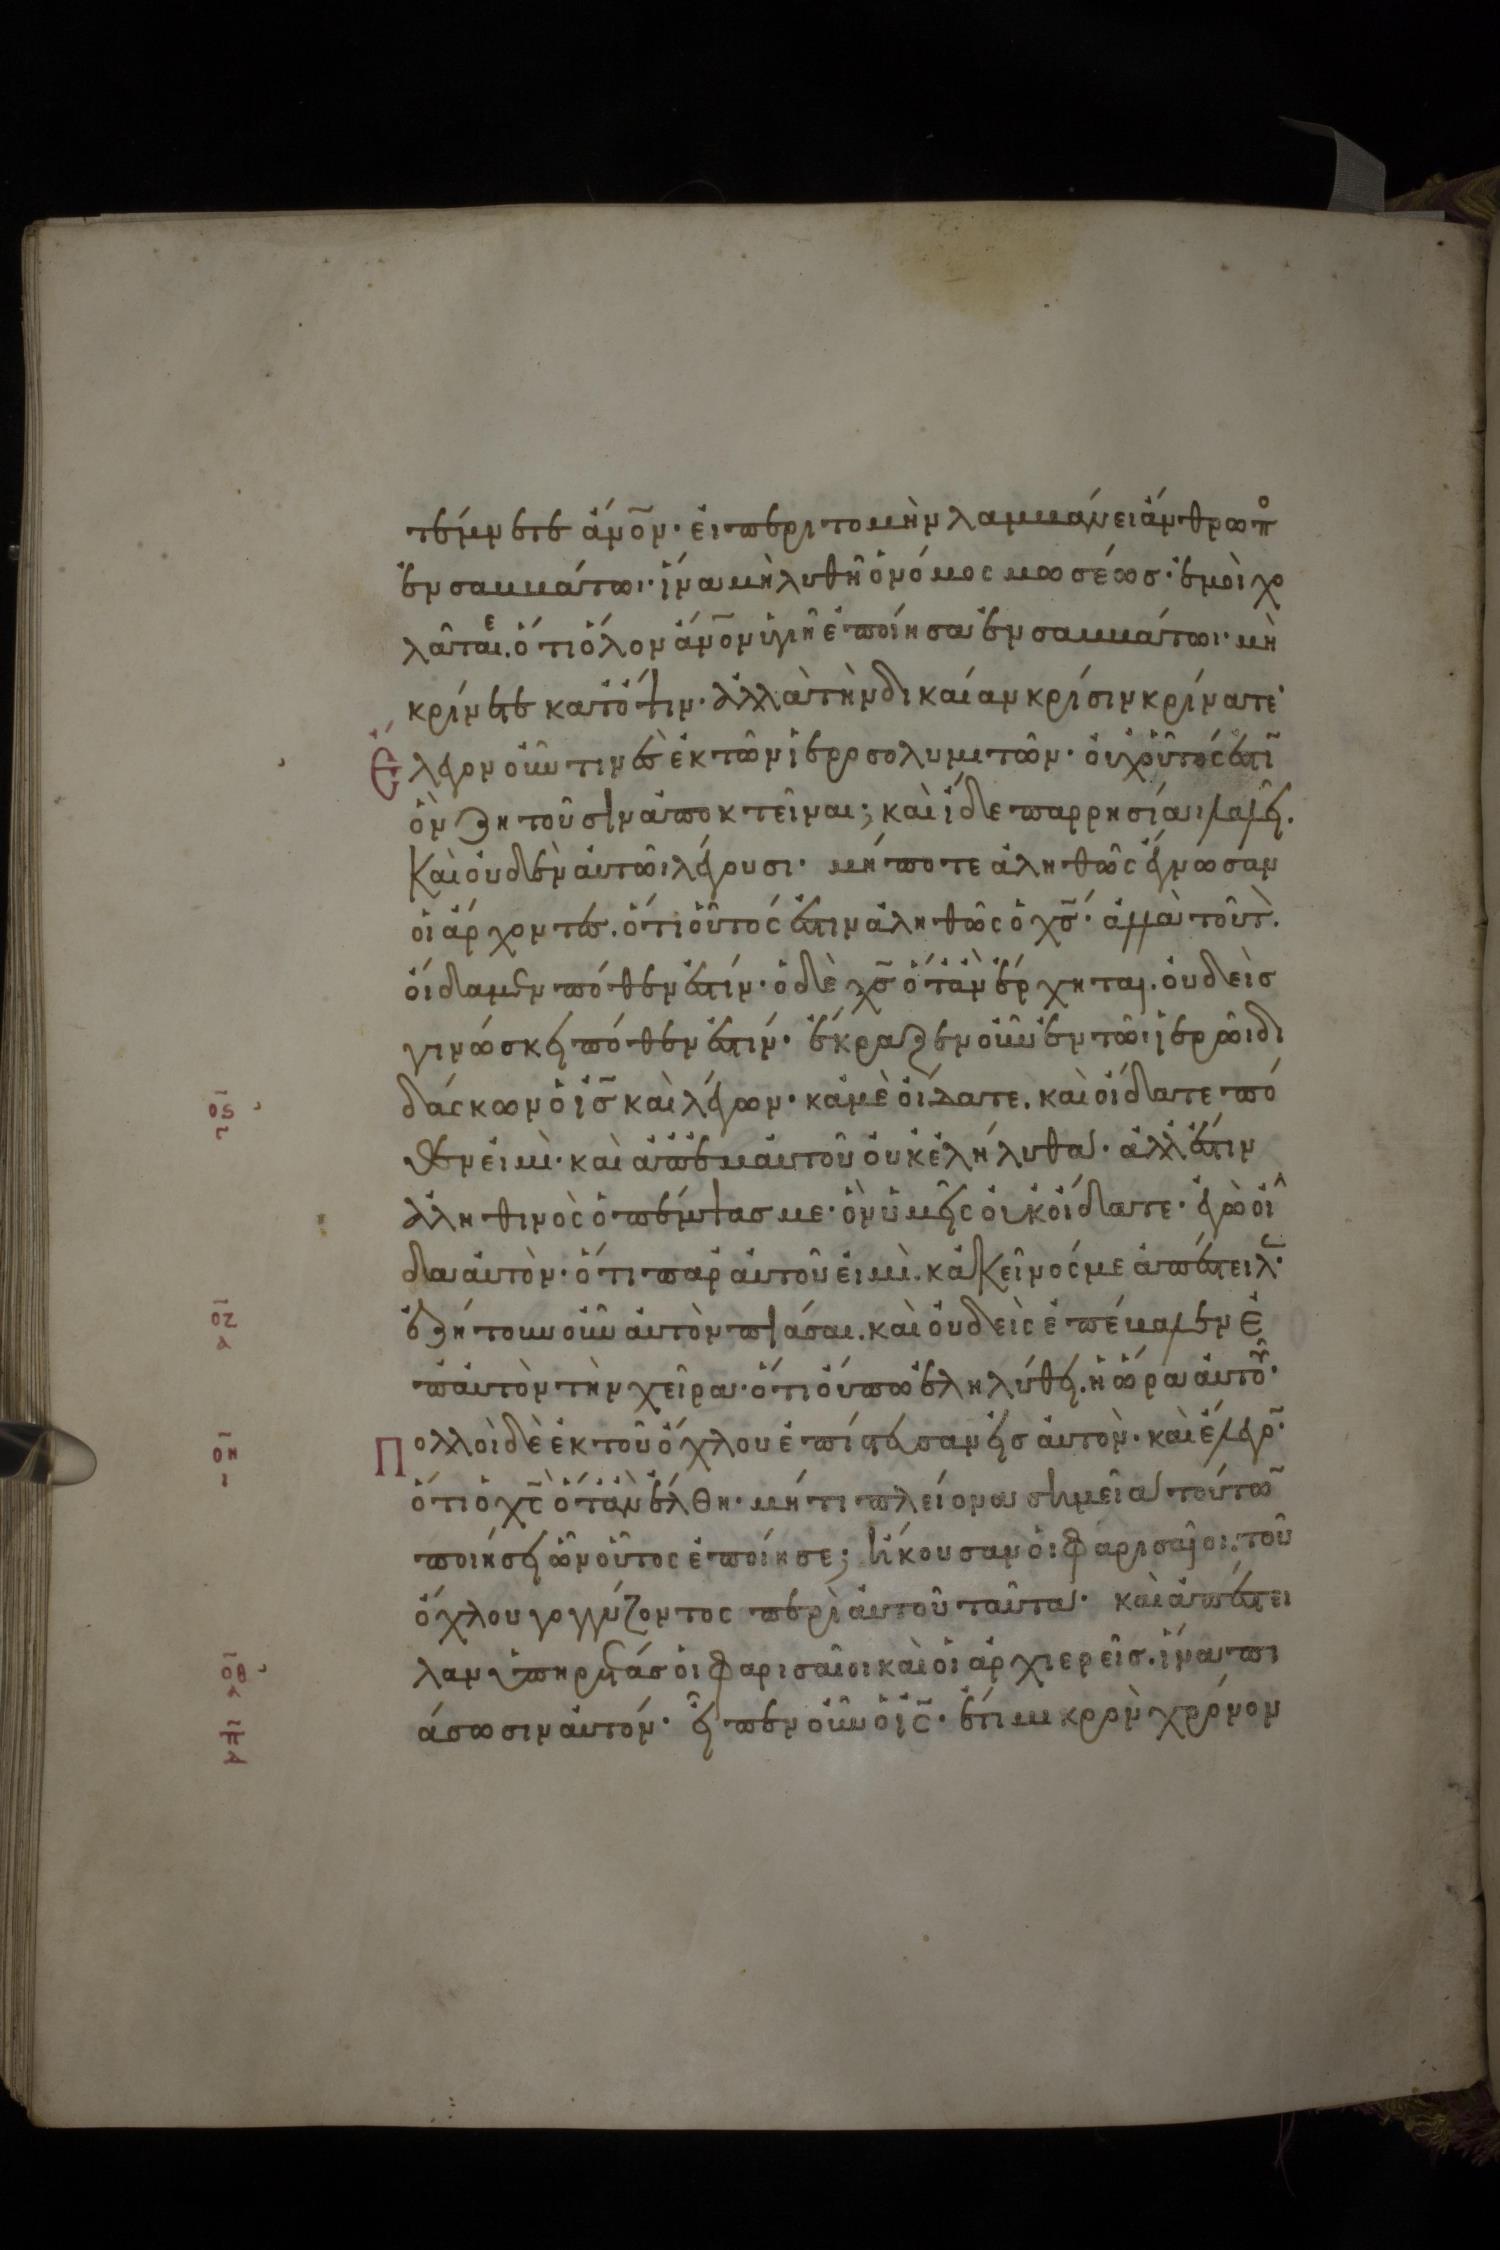 τέμνετε ἄν̄ον· εἰ περιτομὴν λαμβάνει ἄνθρωπο
ἐν σαββάτωι· ἵνα μὴ λυθῆ ὁ νόμος μωσέωσ· ἐμοὶ χο
λᾶται. ὅτι ὅλον ἄν̄ον ὑγιῆ ἐποίησα ἐν σαββάτωι· μὴ
κρίνετε κατ' ὄψιν· ἀλλὰ τὴν δικαίαν κρίσιν κρίνατε·
Ἔλεγον οὖν τινὲς ἐκ τῶν ἱεροσολυμιτῶν· οὐχ οὗτός ἐστῑ
ὃν ζητοῦσιν ἀποκτεῖναι; καὶ ἴδε παρρησίαι λαλεῖ.
Καὶ οὐδὲν αὐτῶι λέγουσι· μήποτε ἀληθῶς ἔγνωσαν
οἱ ἄρχοντες. ὅτι οὗτός ἐστιν ἀληθῶς ὁ χ̄σ· ἀλλὰ τοῦτ
οἴδαμεν πόθεν ἐστίν· ὁ δὲ χ̄σ ὅταν ἔρχηται. οὐδεὶσ
γινώσκει πόθεν ἐστίν· ἔκραζεν οὖν ἐν τῶι ἱερῶι δι
ο̄ϛ
δάσκων ὁ ῑσ̄ καὶ λέγων· κἀμὲ οἴδατε. καὶ οἴδατε πό
θεν εἰμὶ· καὶ ἀπ' ἐμαυτοῦ οὐκ ἐλήλυθα· ἀλλ' ἔστιν
ἀληθινὸς ὁ πέμψασ με· ὃν ὑμεῖς οὐκ οἴδατε· ἐγὼ οἶ
δα αὐτὸν· ὅτι παρ' αὐτοῦ εἰμὶ. κἀκεῖνός με ἀπέστειλ̄·
ο̄ζ
α
ἐζήτουν οὖν αὐτὸν πιάσαι. καὶ οὐδεὶς ἐπέβαλεν ἐ
π' αὐτὸν τὴν χεῖρα· ὅτι οὔπω ἐληλύθει. ἡ ὥρα αὐτοῦ·
ο̄η
ι
Πολλοὶ δὲ ἐκ τοῦ ὄχλου ἐπίστευσαν εἰσ αὐτὸν· καὶ ἔλεγο̄·
ὅτι ὁ χ̄ς ὅταν ἔλθη· μήτι πλείονα σημεῖα τούτω̄
ποιήσει ὧν οὗτος ἐποίησε; ἤκουσαν οἱ φαρισαῖοι. τοῦ
ὄχλου γογγύζοντος περὶ αὐτοῦ ταῦτα· καὶ ἀπέστει
ο̄θ
λαν ὑπηρέτας οἱ φαρισαῖοι καὶ οἱ ἀρχιερεῖσ. ἵνα πι
π̄
α
άσωσιν αὐτόν· εἶπεν οὖν ὁ ῑς̄· ἔτι μικρὸν χρόνον